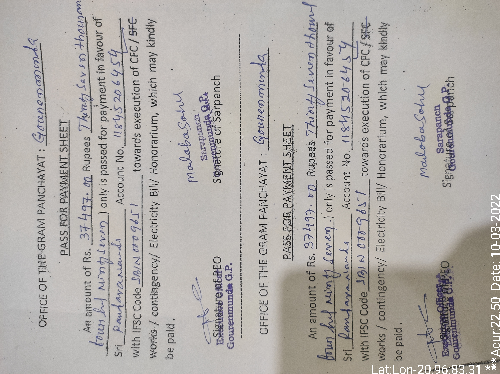 OFFICE OF THE GRAM PANCHAYAT : Gourenmunda
PASS FOR PAYMENT SHEET
An amount of Rs. 37497.00 Rupees Thirty seven thousand
four hundred ninety seven /- only is passed for payment in favour of
Sri Account No. 11845206454
with IFSC Code towards execution of CFC / SFC
works / contingency/ Electricity Bill/ Honorarium, which may kindly
be paid .
Malobasahu
Sarpanch
Gouremunda G.P.
Signature of Sarpanch
Signature of PEO
Gouremunda G.P.
OFFICE OF THE GRAM PANCHAYAT : Gourenmunda
PASS FOR PAYMENT SHEET
An amount of Rs. 37497.00 Rupees Thirty seven thousand
four hundred ninety seven /- only is passed for payment in favour of
Sri Account No. 11845206454
with IFSC Code towards execution of CFC / SFC
works / contingency/ Electricity Bill/ Honorarium, which may kindly
be paid .
Malobasahu
Sarpanch
Gouremunda G.P.
Signature of Sarpanch
Gouremunda G.P.
Lat Lon-20.96 83.31 ** Acur 22.50 Date: 10-03-2022